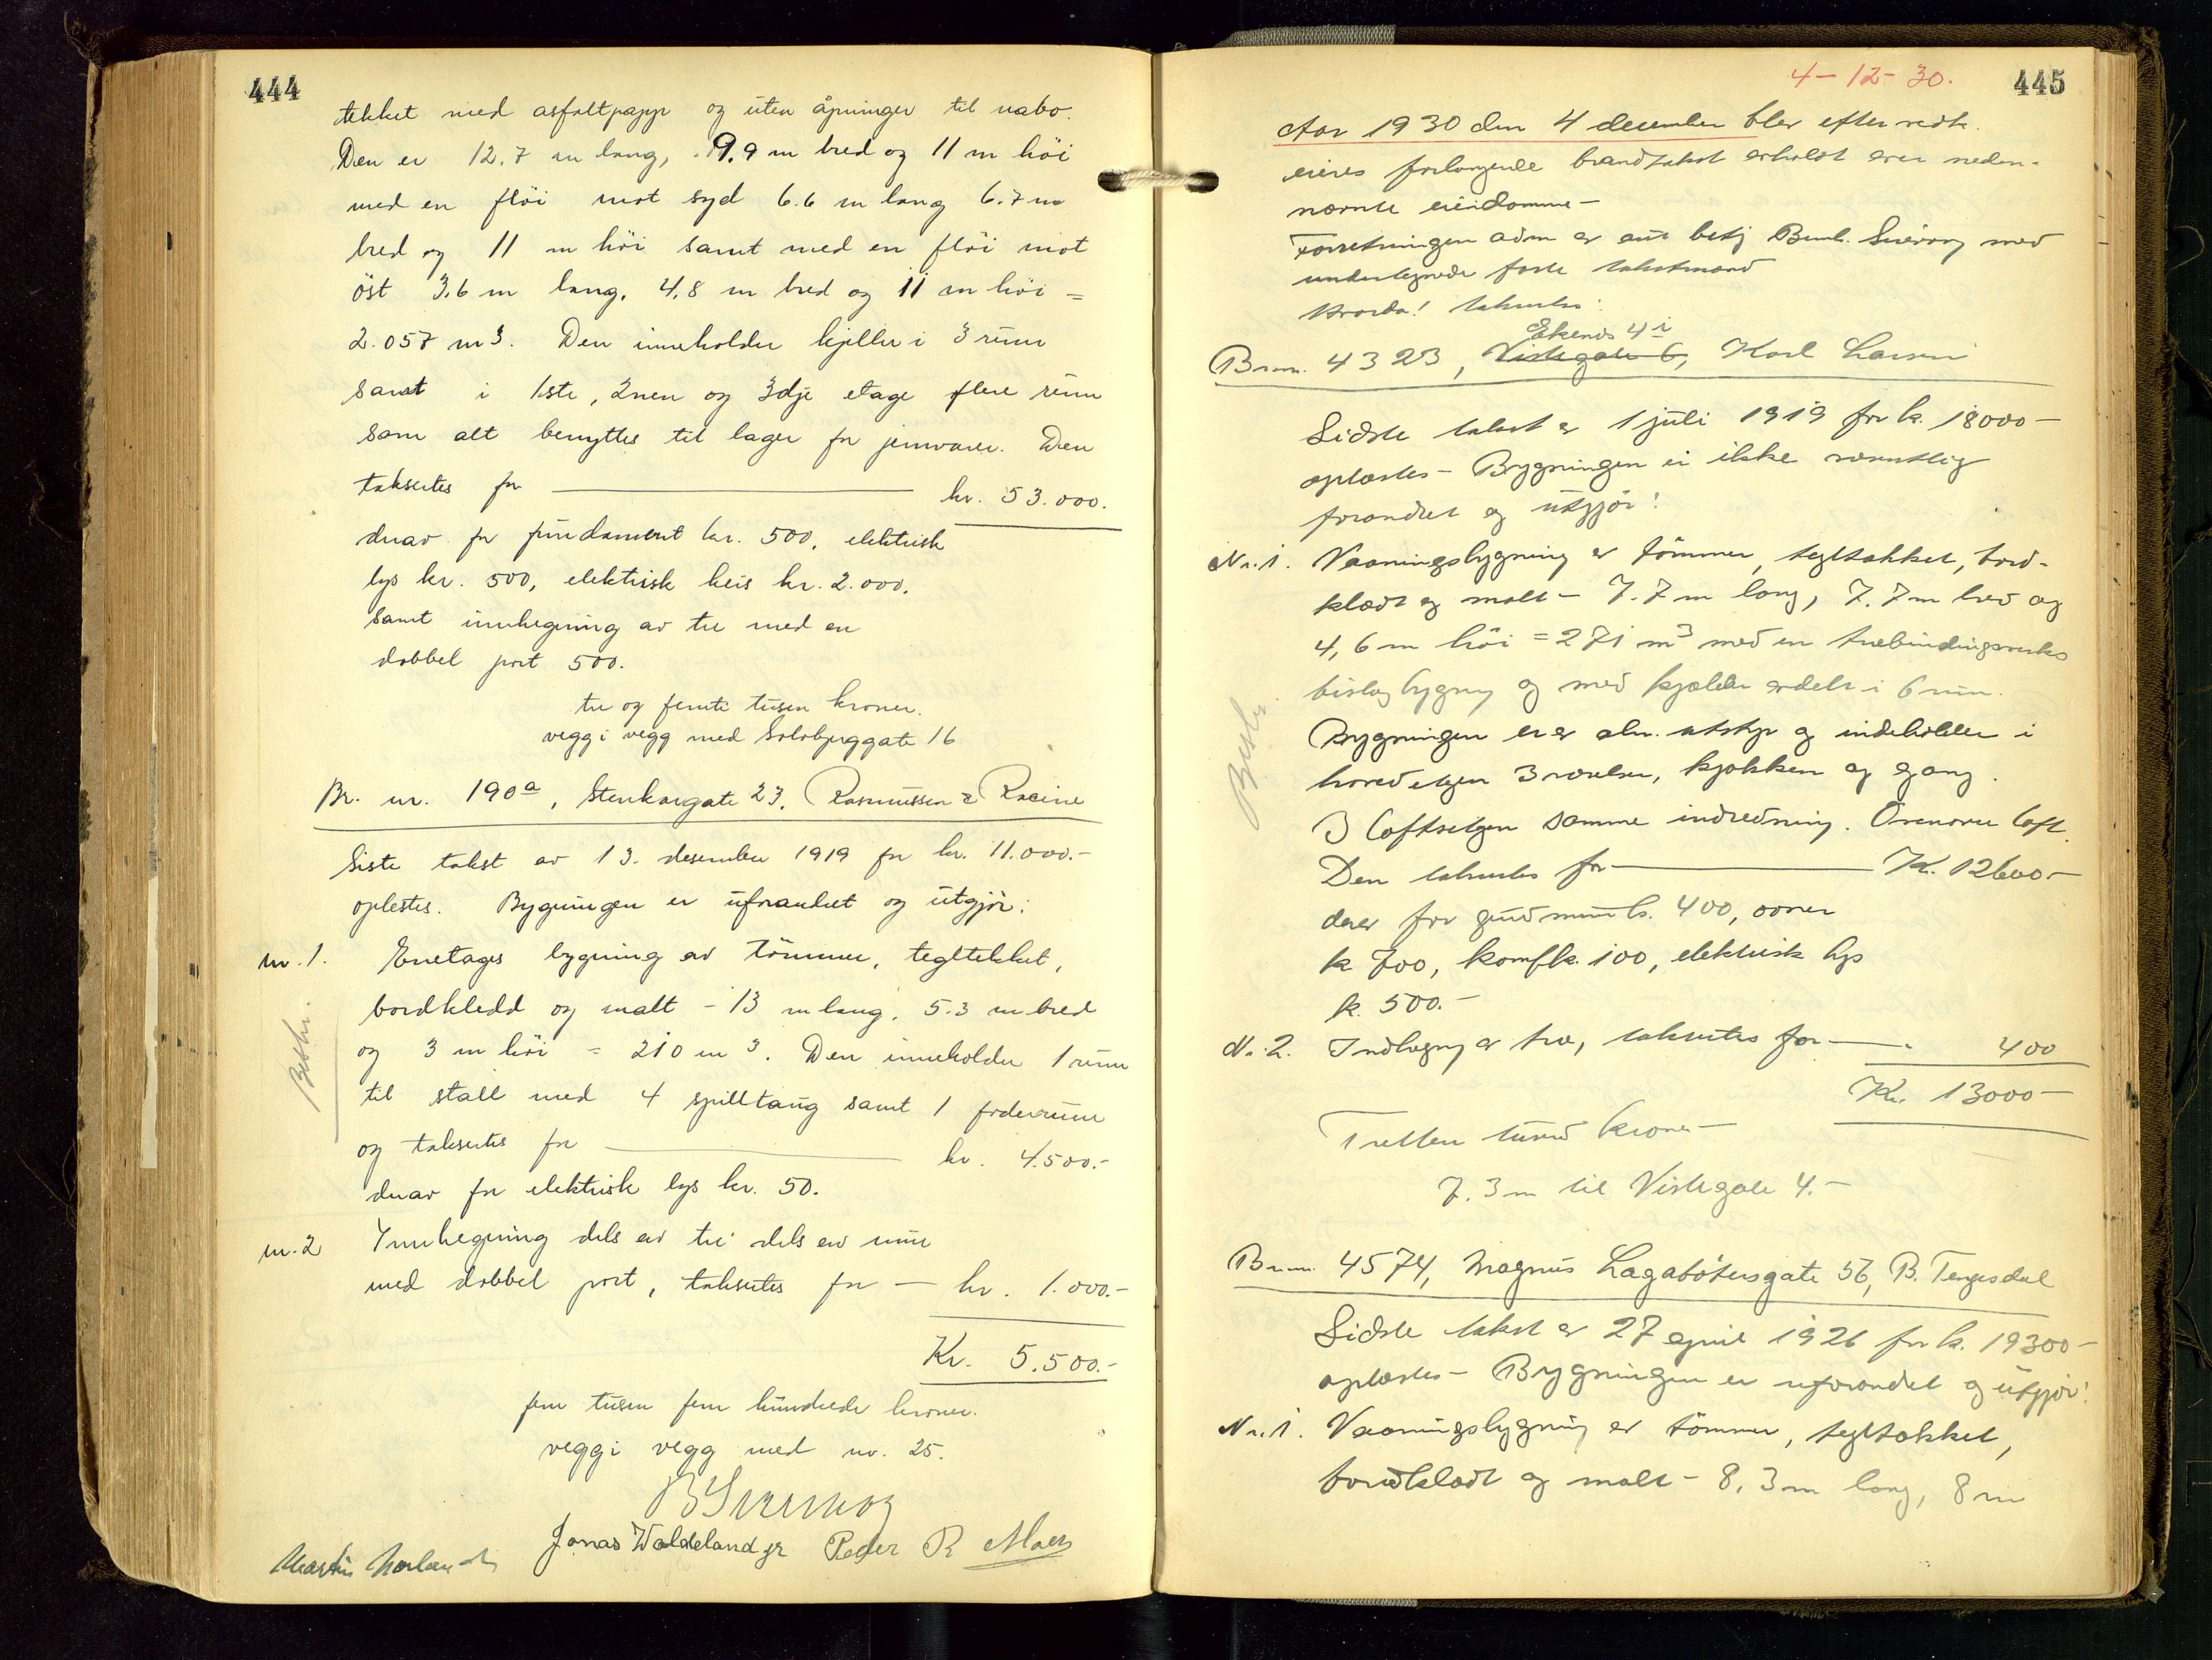 444
tekket med asfaltpapp og uten åpninger til nabo.
Den er 12.7 m lang, 9.9 m bred og 11 m höi
med en flöi mot syd 6.6 m lang 6.7 m
bred og 11 m höi samt med en flöi mot
öst 3,6 m lang, 4,8 m bred og 11 m höi =
2.057 m3. Den inneholder kjeller i 3 rum
samt i 1ste, 2nen og 3dje etage flere rum
som alt benyttes til lager for jernvarer. Den
takseres for kr. 53.000.
derav for fundament kr. 500, elektrisk
lys kr. 500, elektrisk heis kr. 2.000.
samt innhegning av tre med en
dobbel port 500.
tre og femti tusen kroner.
vegg i vegg med Solvbjerggate 16
Br. nr. 190a, Stenkargate 23, Rasmussen & Racine
Siste takst av 13. desember 1919 for kr. 11.000.-
oplestes. Bygningen er uforandret og utgjör:
nr. 1. Enetages bygning av tömmer, tegltekket,
bordkledd og malt - 13 m lang, 5.3 m bred
og 3 m höi = 210 m3. Den inneholder 1 rum
til stall med 4 spilltaug samt 1 foderrum
og takseres for kr. 4.500.-
derav for elektrisk lys kr. 50.
nr. 2 Innhegning dels av tre dels av mur
med dobbel port, takseres for - kr. 1.000.-
Kr. 5.500.-
fem tusen fem hundrede kroner.
vegg i vegg med nr. 25.
Jonas Waldeland jr Peder R
Martin
4-12-30.
445
Aar 1930 den 4 december blev efter vedk.
eieres forlangende brandtakst avholdt over neden-
nævnte eiendomme-
Forretningen adm av aut betj med
undertegnede faste takstmænd
Eikenes 4
Br.nr. 4323, Vistegate 6, Karl Larsen
Sidste takst av 1 juli 1919 for k. 18000-
oplæstes - Bygningen er ikke væsentlig
forandret og utgjör:
Nr. 1. Vaaningsbygning av tömmer, tegltækket, bord-
klædt og malt - 7.7 m lang, 7.7 m bred og
4,6 m höi = 271 m3 med en træbindingsverks
bislagbygning og med kjælder avdelt i 6 rum.
Bygningen er av alm. utstyr og indeholder i
hovedetagen 3 værelser, kjökken og gang.
I loftsetagen samme indredning. Ovenover loft.
Den takseres for K. 12600.-
derav for grundmur k. 400, ovner
k 700, komf k. 100, elektrisk lys
k. 500.-
Nr. 2. Indhegning av træ, takseres for - 400
Kr. 13000-
Tretten tusind kroner-
7.3 m til Vistegate 4.-
Br.nr. 4574, Magnus Lagabötersgate 56, B. Tengesdal
Sidste takst av 27 april 1926 for k. 19300-
oplæstes - Bygningen er uforandret og utgjör:
Nr. 1. Vaaningsbygning av tömmer, tegltækket,
bordklædt og malt - 8,3 m lang, 8 m